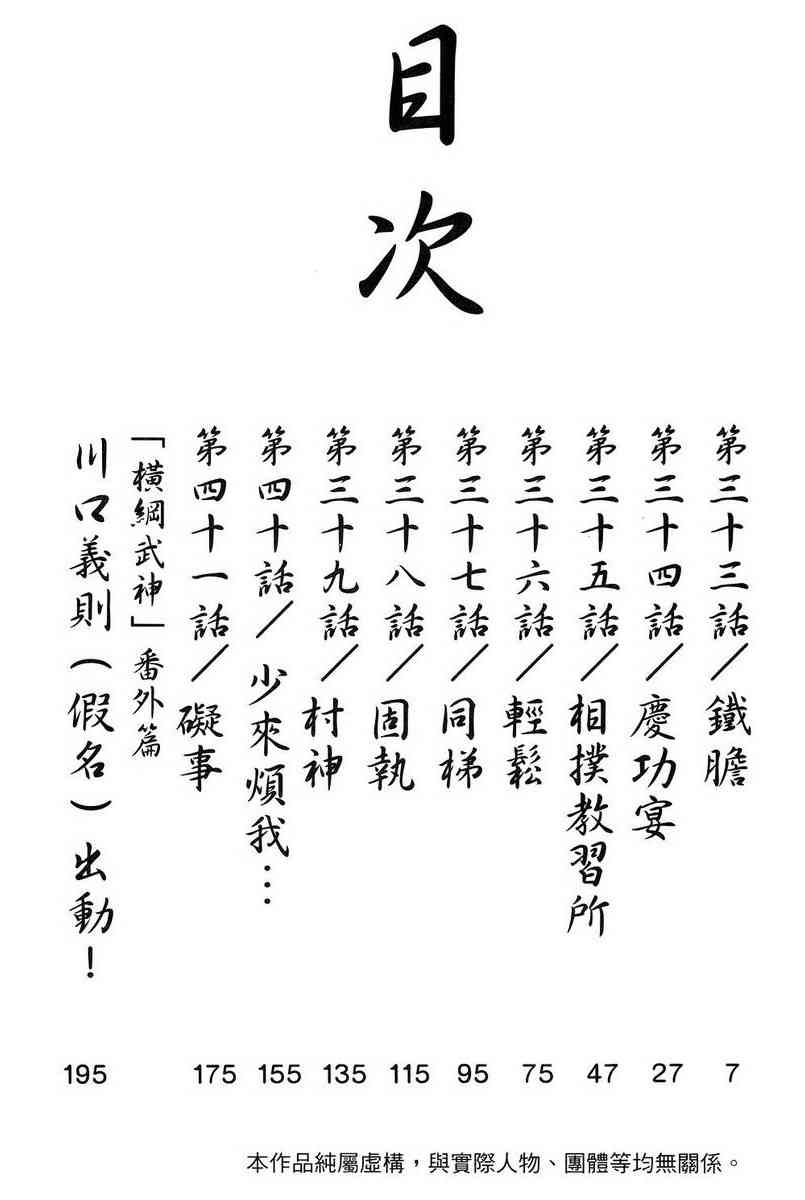 目次
第三十三話／鐵膽
第三十四話／慶功宴
第三十五話／相撲教習所
第三十六話／輕鬆
第三十七話／同梯
第三十八話／固執
第三十九話／村神
第四十話／少來煩我…
第四十一話／礙事
「橫綱武神」番外篇
川口義則（假名）出動！
7
27
47
75
95
115
135
155
175
195
本作品純屬虛構，與實際人物、團體等均無關係。